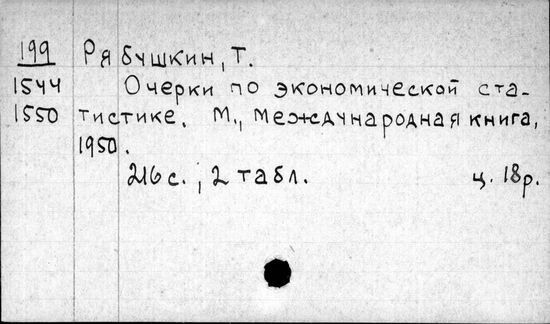 199 Рябушкин, Т.
1544 Очерки по экономической ста-
1550 тистике. М., Международная книга,
1950.
216 с.; 2 табл. ц. 18р.